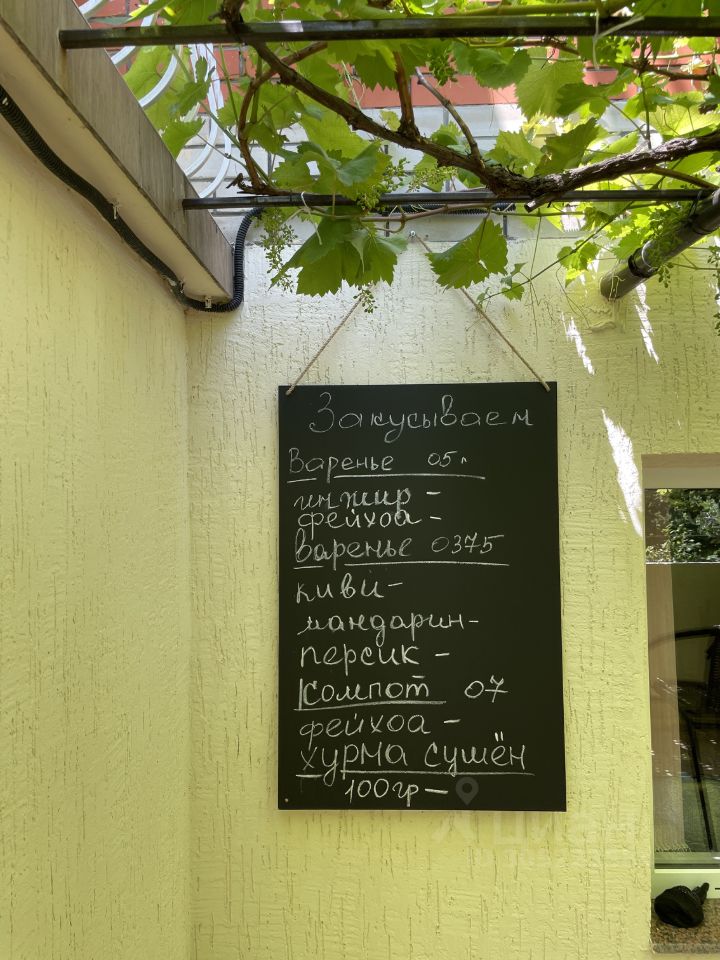 Закусываем
Варенье 05л
инжир -
фейхоа -
варенье 0375
киви -
мандарин -
персик -
Компот 07
фейхоа -
хурма сушён
100гр -
Циан